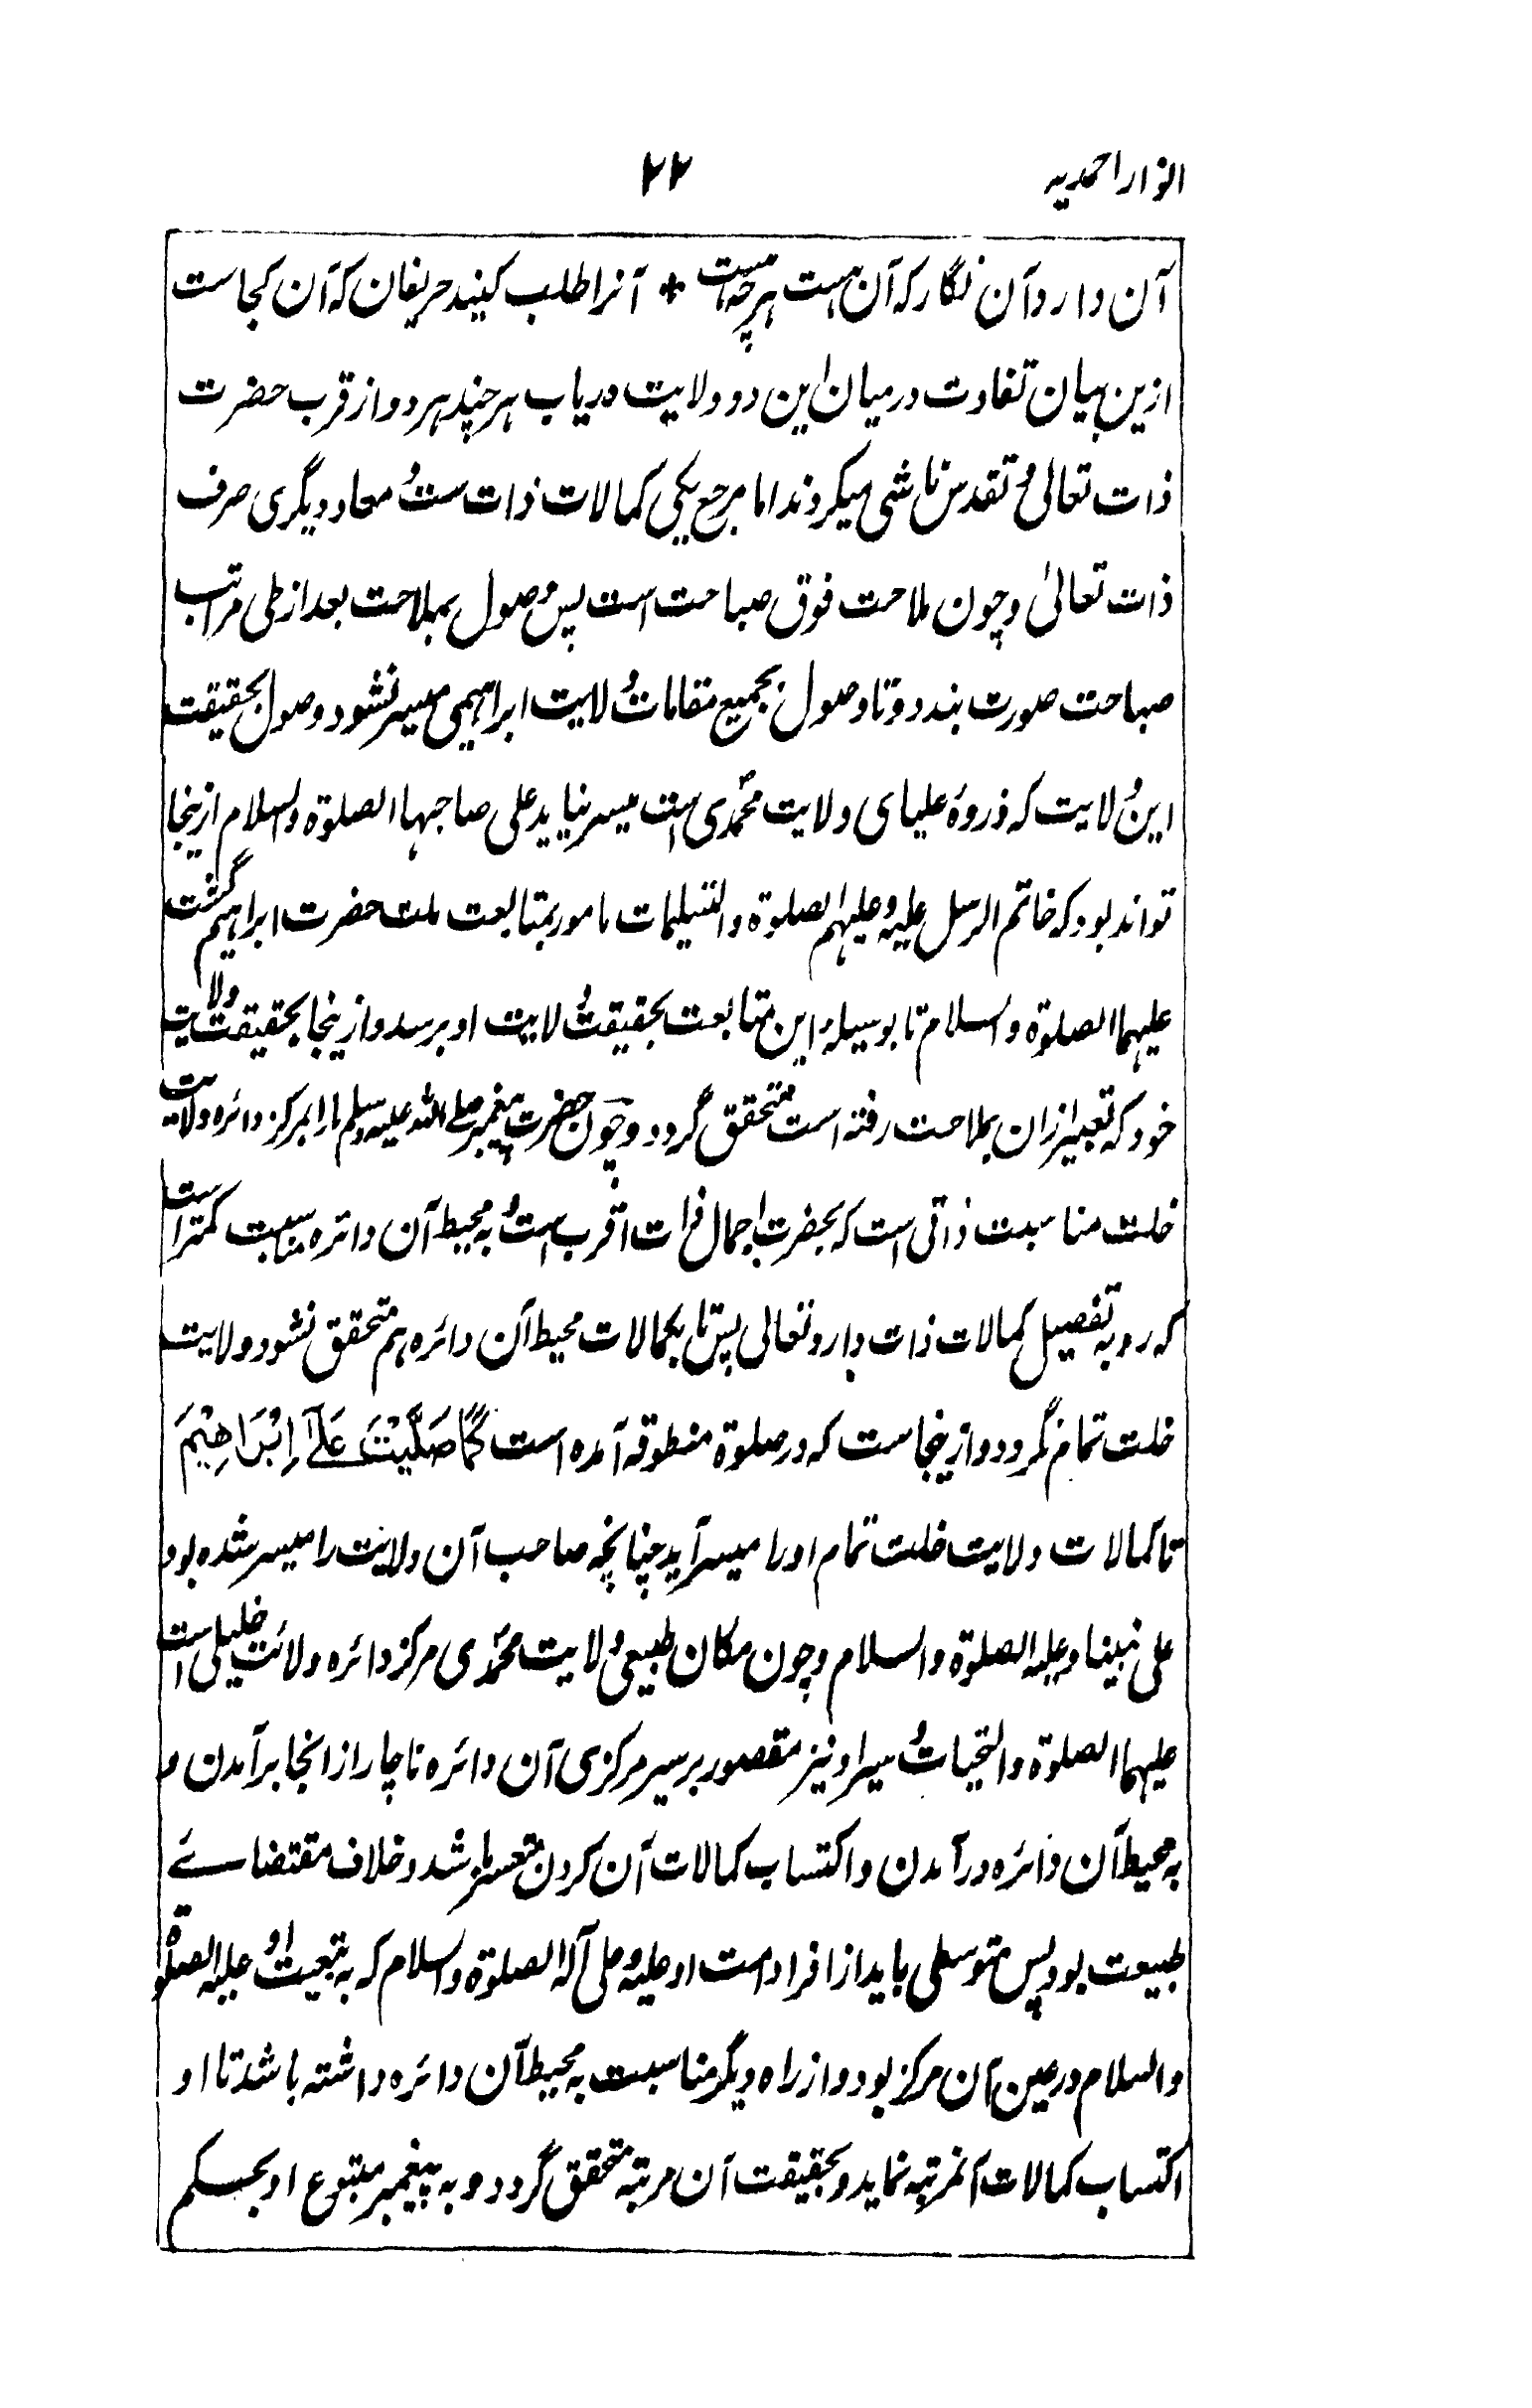 انوار احمدیہ ۲۲
آن دارد آن نگار که آن هست هرچه هست * آنرا طلب کنید حریفان که آن کجاست
ازین بیان تفاوت درمیان این دو ولایت دریاب هرچند هر دو از قرب حضرت
ذات تعالی و تقدس ناشی میگردند اما مرجع یکی کمالات ذات ست و معاد دیگری صرف
ذات تعالیٰ و چون ملاحت فوق صباحت است پس وصول بملاحت بعد از طی مراتب
صباحت صورت بندد و تا وصول بجمیع مقامات ولایت ابراهیمی میسر نشود وصول بحقیقت
این ولایت که ذروهٔ علیای ولایت محمدی است میسر نیاید علی صاحبها الصلوة والسلام ازینجا
تواند بود که خاتم الرسل علیه وعلیهم الصلوة والتسلیمات مامور بمتابعت ملت حضرت ابراهیم گشت
علیهما الصلوة والسلام تا بوسیلهٔ این متابعت بحقیقت ولایت او برسد و ازینجا بحقیقت ولایت
خود که تعبیر ازان بملاحت رفته است متحقق گردد و چون حضرت پیغمبر صلے الله علیه وسلم ما را بمرکز دائره ولایت
خلت مناسبت ذاتی است که بحضرت اجمال ذات اقرب است و به محیط آن دائره مناسبت کمتر است
که رو به تفصیل کمالات ذات دارد تعالی پس تا بکمالات محیط آن دائره هم متحقق نشود ولایت
خلت تمام نگردد و ازینجاست که در صلوة منطوقه آمده است کَمَا صَلَّیْتَ عَلَےٰ اِبْرَاهِیْمَ
تا کمالات ولایت خلت تمام او را میسر آید چنانچه صاحب آن ولایت را میسر شده بود
علی نبینا وعلیه الصلوة والسلام و چون مکان طبیعی ولایت محمدی مرکز دائره ولائت خلیلی است
علیهما الصلوة والتحیات و سیر او نیز مقصور بر سیر مرکزی آن دائره ناچار از انجا برآمدن و
به محیط آن دائره درآمدن و اکتساب کمالات آن کردن متعسر باشد و خلاف مقتضائے
طبیعت بود پس متوسطی باید از افراد امت او علیه و علی آله الصلوة والسلام که به تبعیت او علیه الصلوة
والسلام در عین آن مرکز بود و از راه دیگر مناسبت به محیط آن دائره داشته باشد تا او
اکتساب کمالات آنمرتبه نماید و بحقیقت آن مرتبه متحقق گردد و به پیغمبر متبوع او بحکم